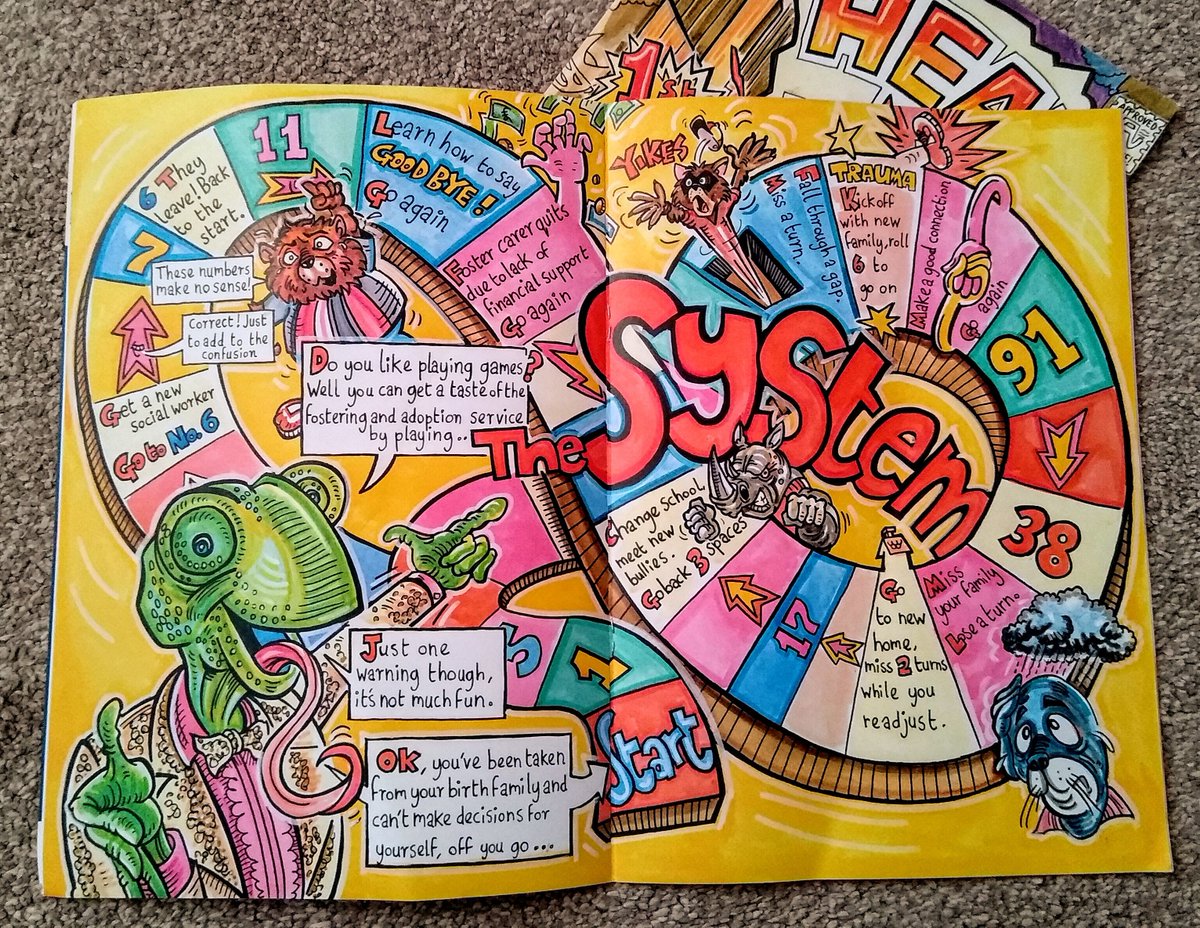 1ST
HEA
APPROVED
6 They
leave! Back
to the
start.
11
Learn how to say
GOODBYE!
Go again
7
These numbers
make no sense!
Correct! Just
to add to the
confusion
Get a new
social worker
Go to No. 6
Foster carer quits
due to lack of
financial support
Go again
Do you like playing games?
Well you can get a taste of the
fostering and adoption service
by playing..
The System
YIKES
Fall through a gap.
Miss a turn.
TRAUMA
Kickoff
with new
family, roll
6 to
go on
Make a good connection
Go again
91
38
Miss
your family
Lose a turn.
Go
to new
home,
miss 2 turns
while you
readjust.
17
Change School,
meet new
bullies.
Go back 3 spaces
Just one
warning though,
it's not much fun.
3
1
Start
OK, you've been taken
from your birth family and
can't make decisions for
yourself, off you go...